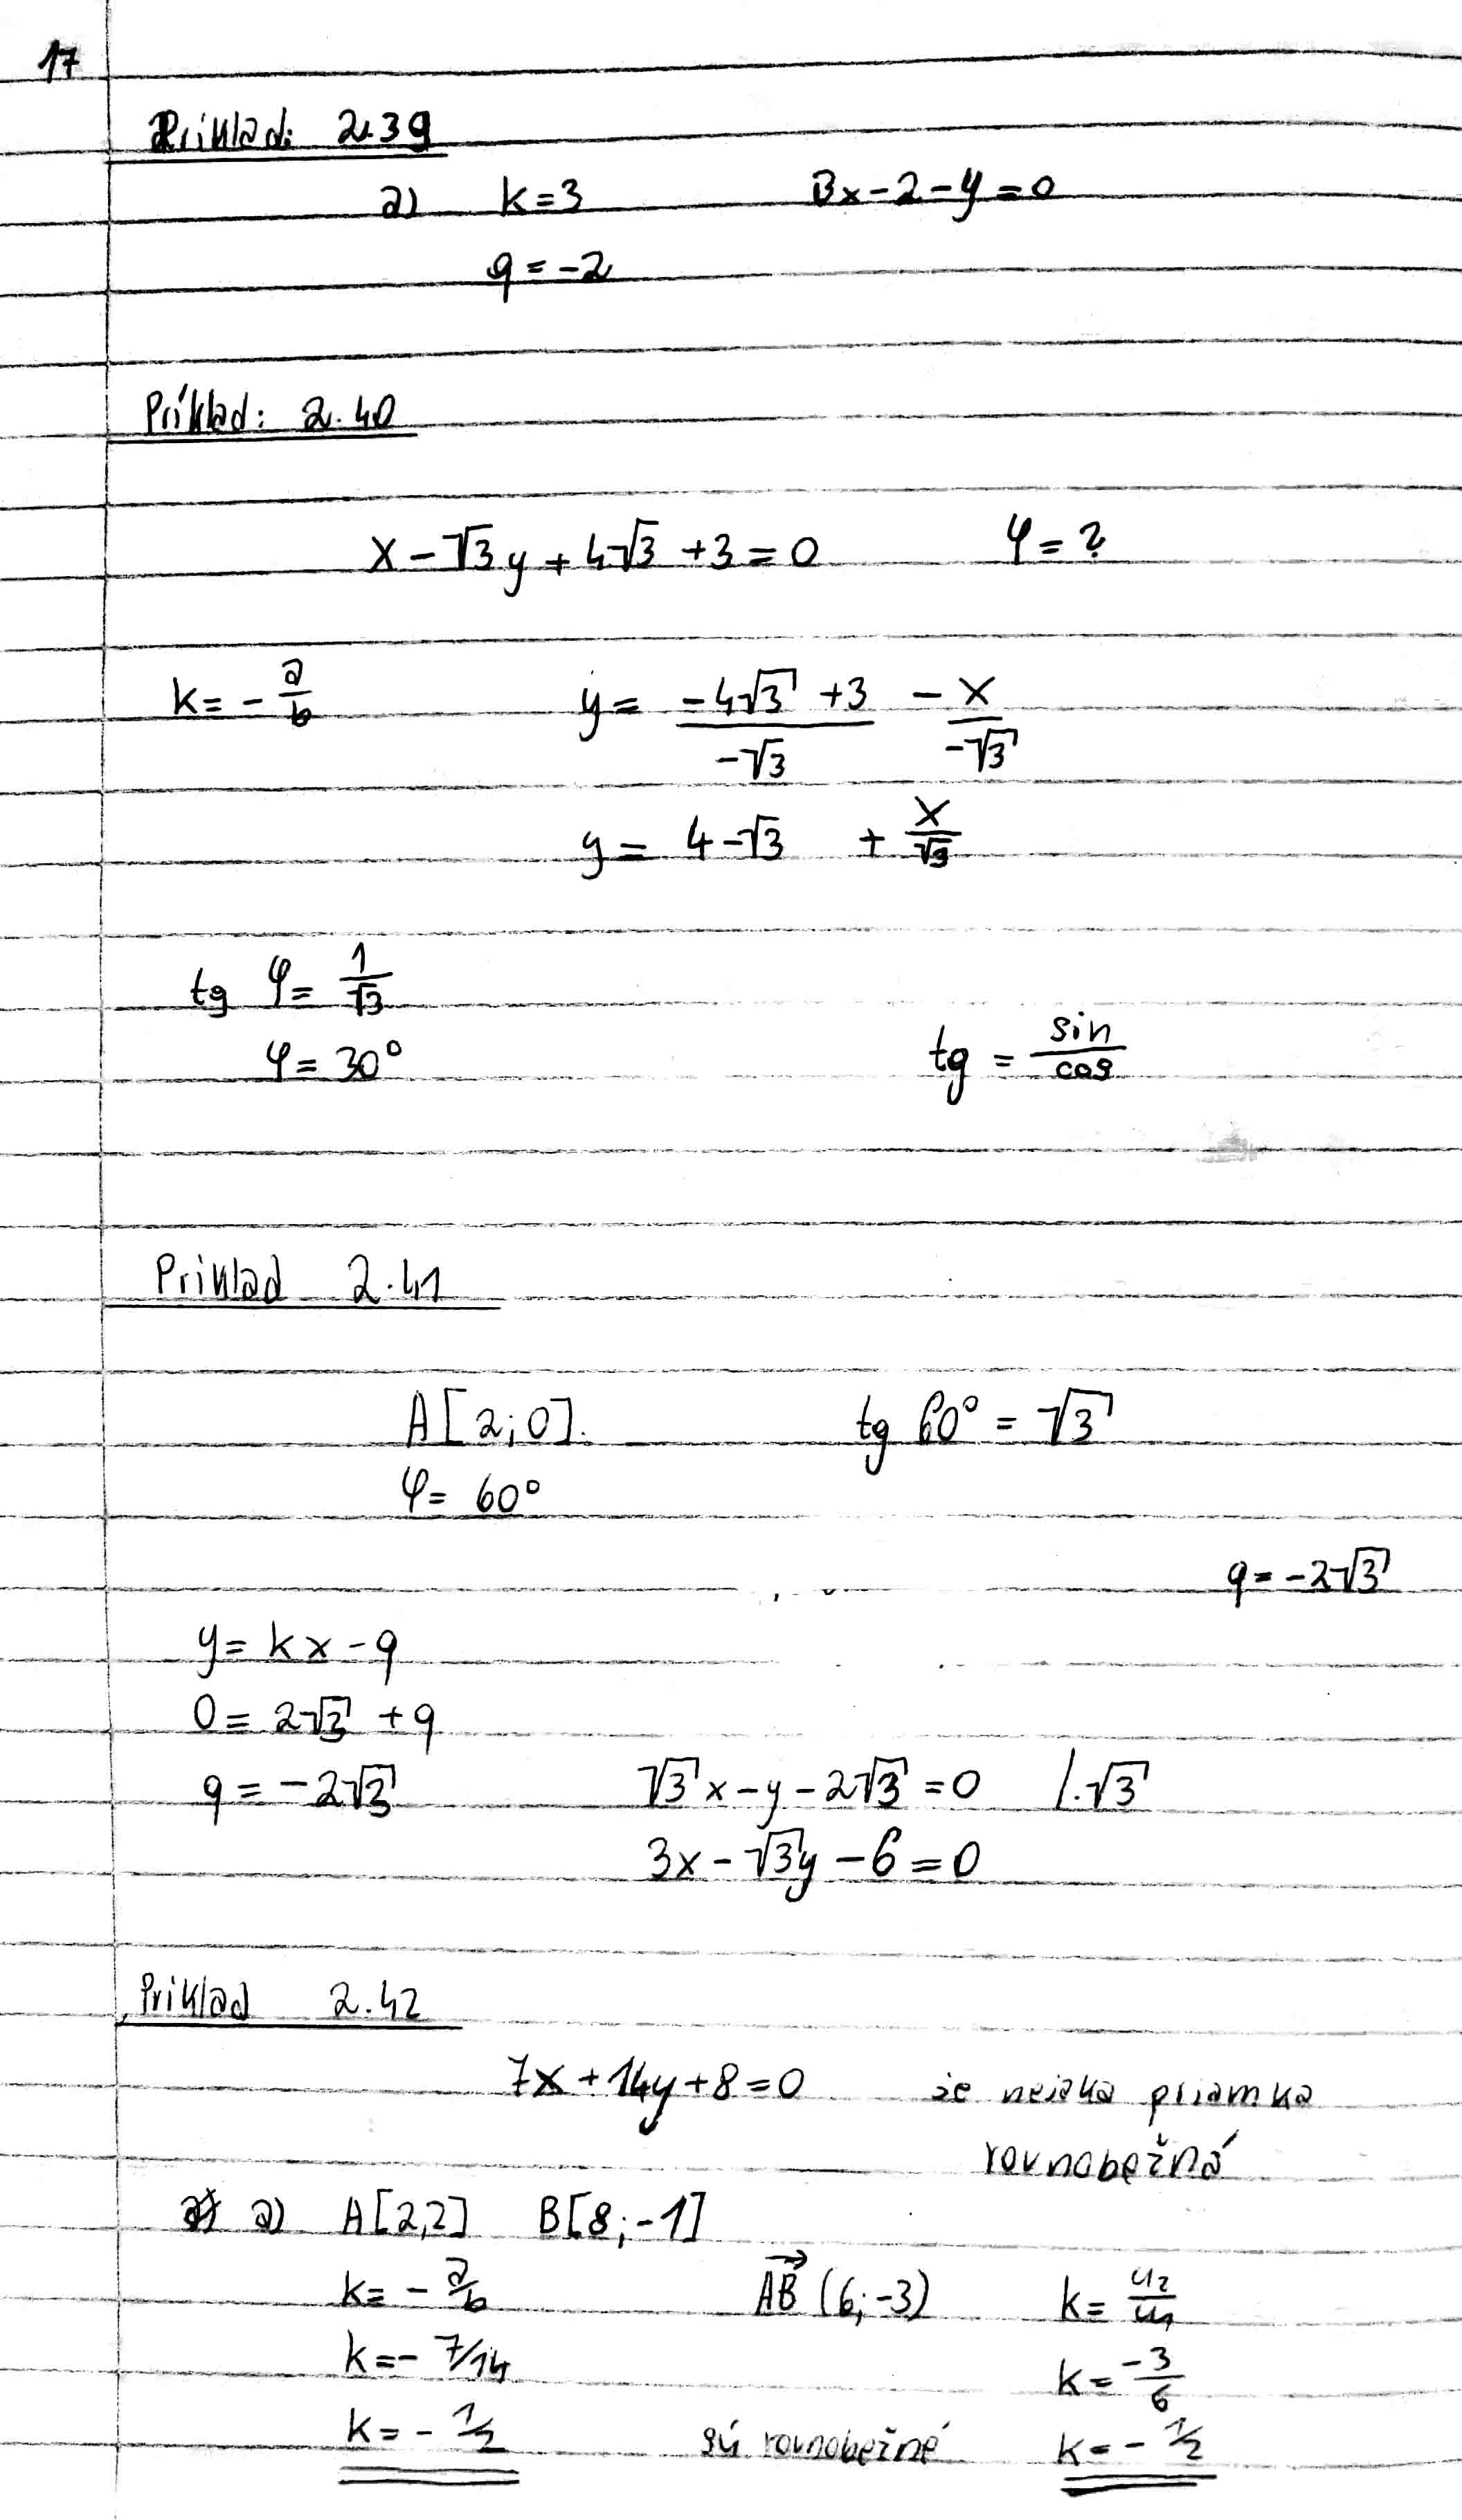 17
Príklad: 2.39
a) k = 3 3x - 2 - y = 0
q = -2
Príklad: 2.40
x - √3y + 4√3 + 3 = 0 φ = ?
k = - a/b y = (-4√3 + 3)/(-√3) - x/(-√3)
y = 4 - √3 + x/√3
tg φ = 1/√3
φ = 30° tg = sin/cos
Priklad 2.41
A[2;0]. tg 60° = √3
φ = 60°
q = -2√3
y = kx - q
0 = 2√3 + q
q = -2√3 √3x - y - 2√3 = 0 /.√3
3x - √3y - 6 = 0
Priklad 2.42
7x + 14y + 8 = 0 je nejaka priamka
rovnobežná
a) A[2,2] B[8;-1]
k = - a/b AB (6;-3) k = u2/u1
k = - 7/14 k = -3/6
k = - 1/2 sú rovnobežné k = - 1/2